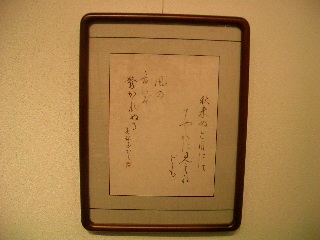 秋来ぬと目には
さやかに見えね
ども
風の
音にぞ
驚かれぬる